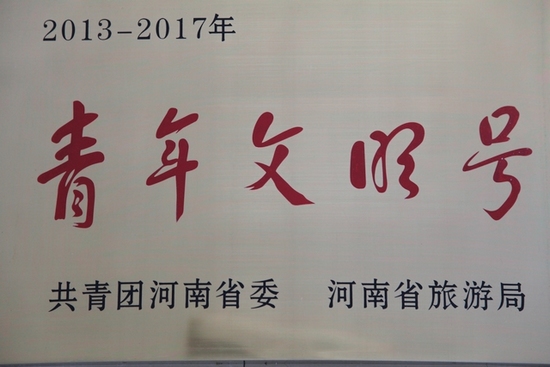 2013-2017年
青年文明号
共青团河南省委 河南省旅游局